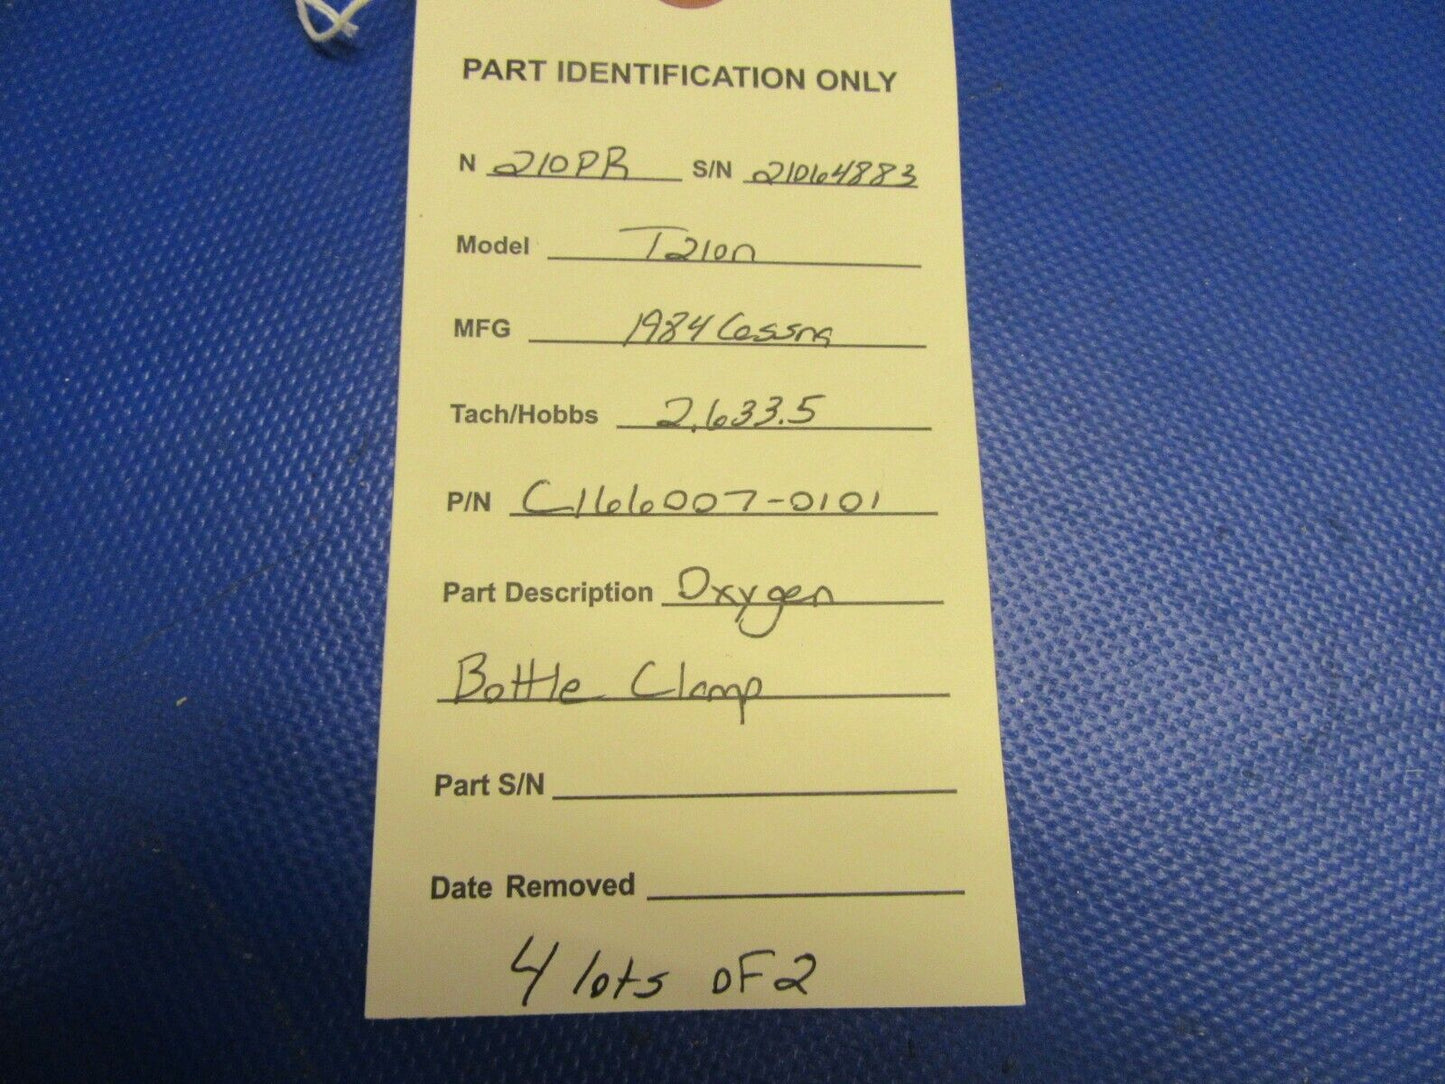 PART IDENTIFICATION ONLY
N 210PR S/N 21064883
Model T210n
MFG 1984 Cessna
Tach/Hobbs 2,633.5
P/N C166007-0101
Part Description Oxygen
Bottle Clamp
Part S/N
Date Removed
4 lots oF 2